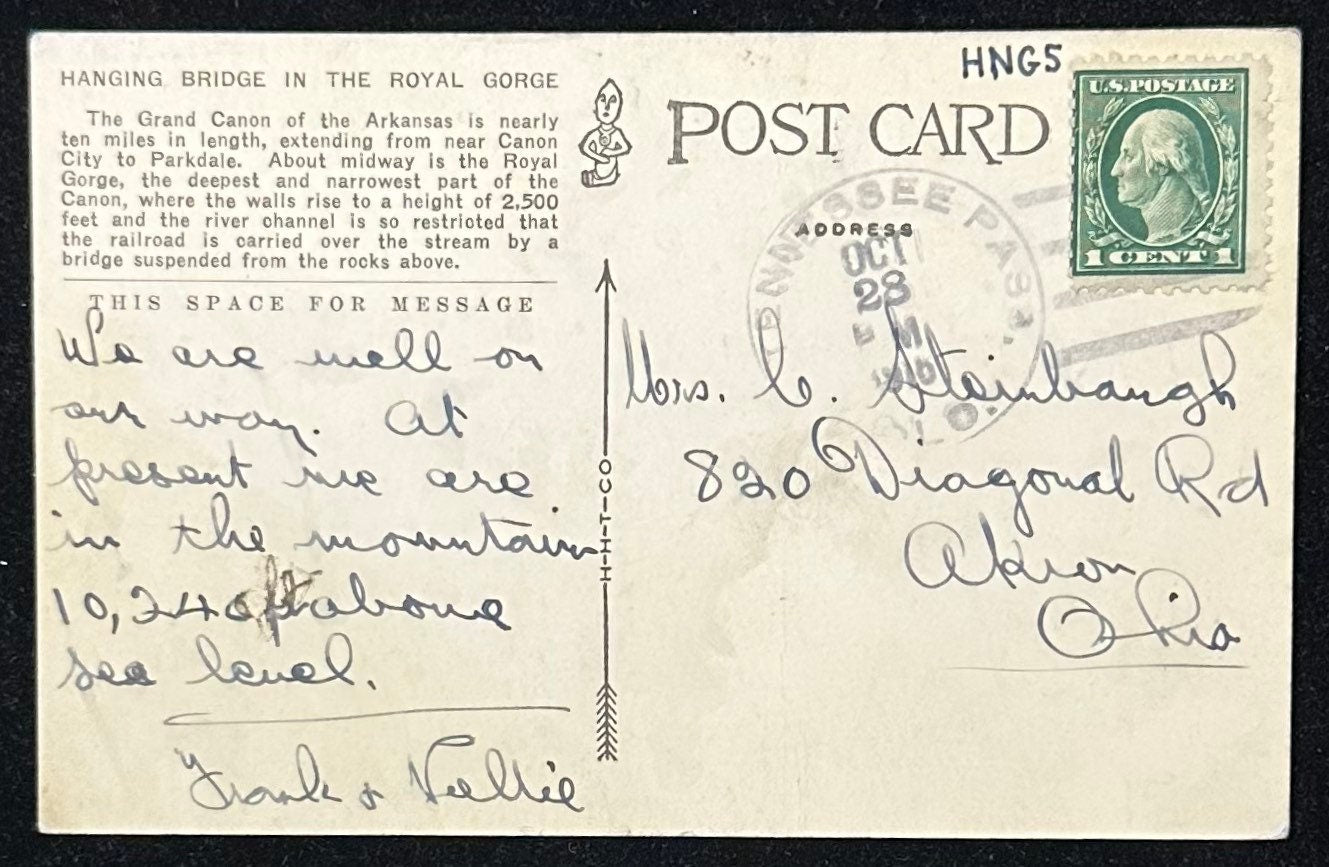 HANGING BRIDGE IN THE ROYAL GORGE
The Grand Canon of the Arkansas is nearly
ten miles in length, extending from near Canon
City to Parkdale. About midway is the Royal
Gorge, the deepest and narrowest part of the
Canon, where the walls rise to a height of 2,500
feet and the river channel is so restricted that
the railroad is carried over the stream by a
bridge suspended from the rocks above.
THIS SPACE FOR MESSAGE
We are well on
our way. At
present we are
in the mountains
10,240 ft above
sea level.
Frank & Nellie
H-H-T-CO
HNG5
POST CARD
ADDRESS
U.S. POSTAGE
1 CENT 1
TENNESSEE PASS,
OCT
28
M
COLO.
Mrs. C. Steinbaugh
820 Diagonal Rd
Akron
Ohio